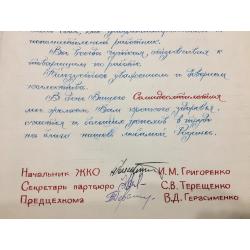 исполнительный работник.
Вы всегда чуткая, отзывчивая к
товарищам по работе.
Пользуетесь уважением и доверием
коллектива.
В день Вашего Семидесятилетия
мы желаем Вам крепкого здоровья,
счастья и больших успехов в труде
на благо нашей любимой Родины.
Начальник ЖКО И.М. Григоренко
Секретарь партбюро С.В. Терещенко
Предцехкома В.Д. Герасименко